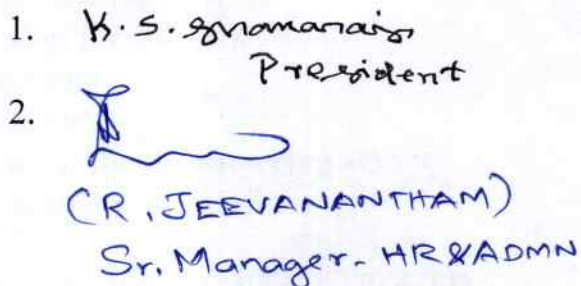 1. K. S.
President
2.
(R. JEEVANANTHAM)
Sr. Manager - HR & ADMN